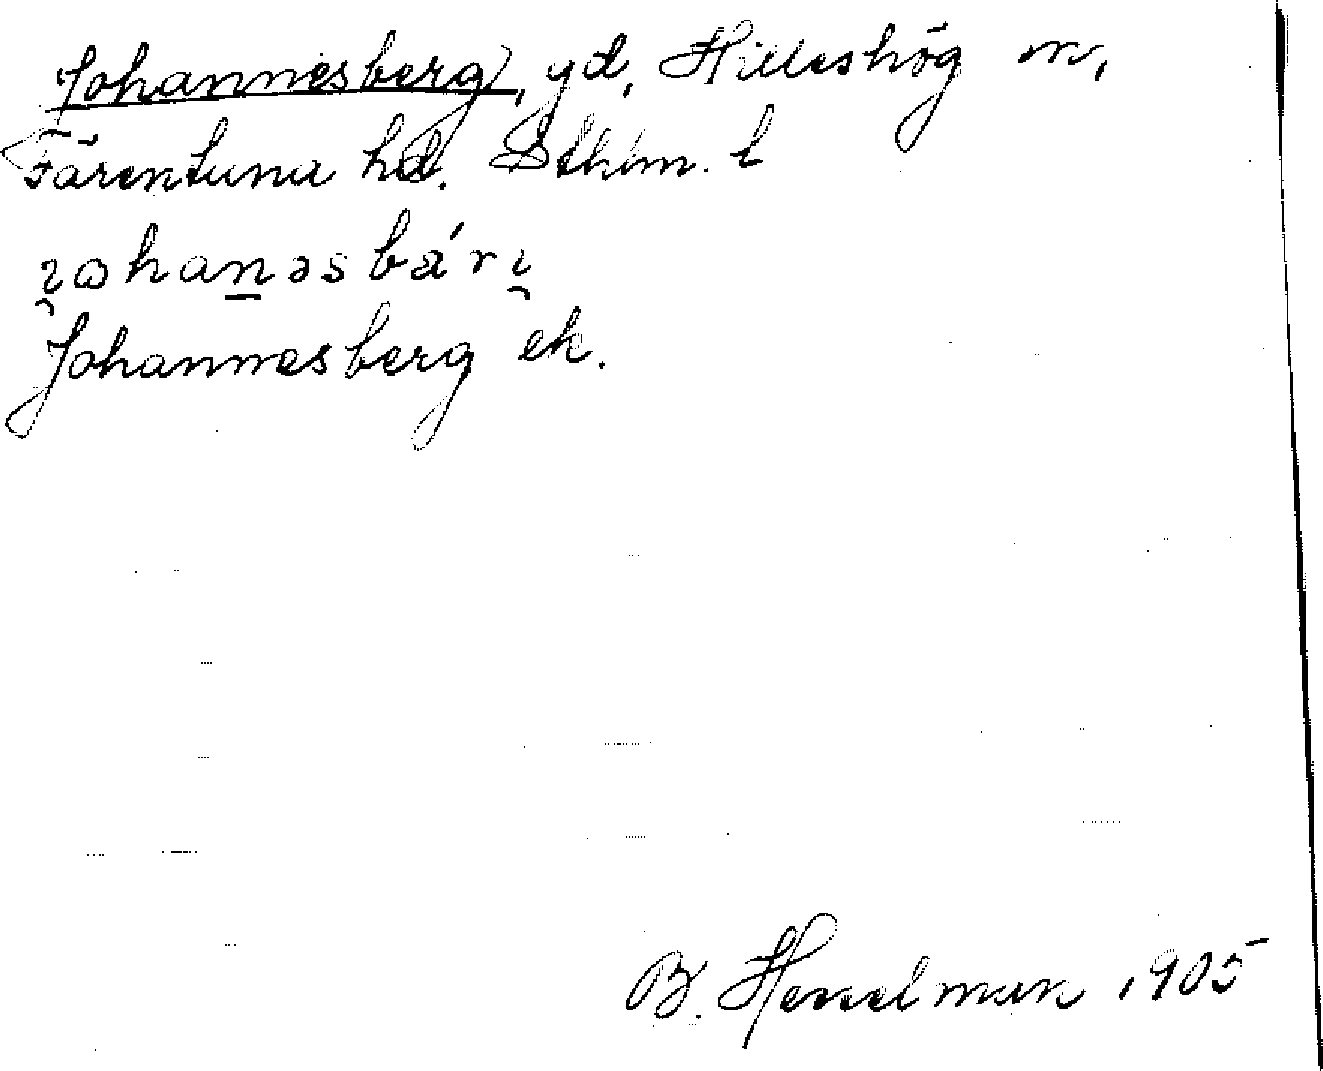 Johannesberg, gd, Hilleshög sn,
Färentuna hd. Sthlm. l
i̯ohanəsbári̯
Johannesberg ek.
B. Hesselman 1905